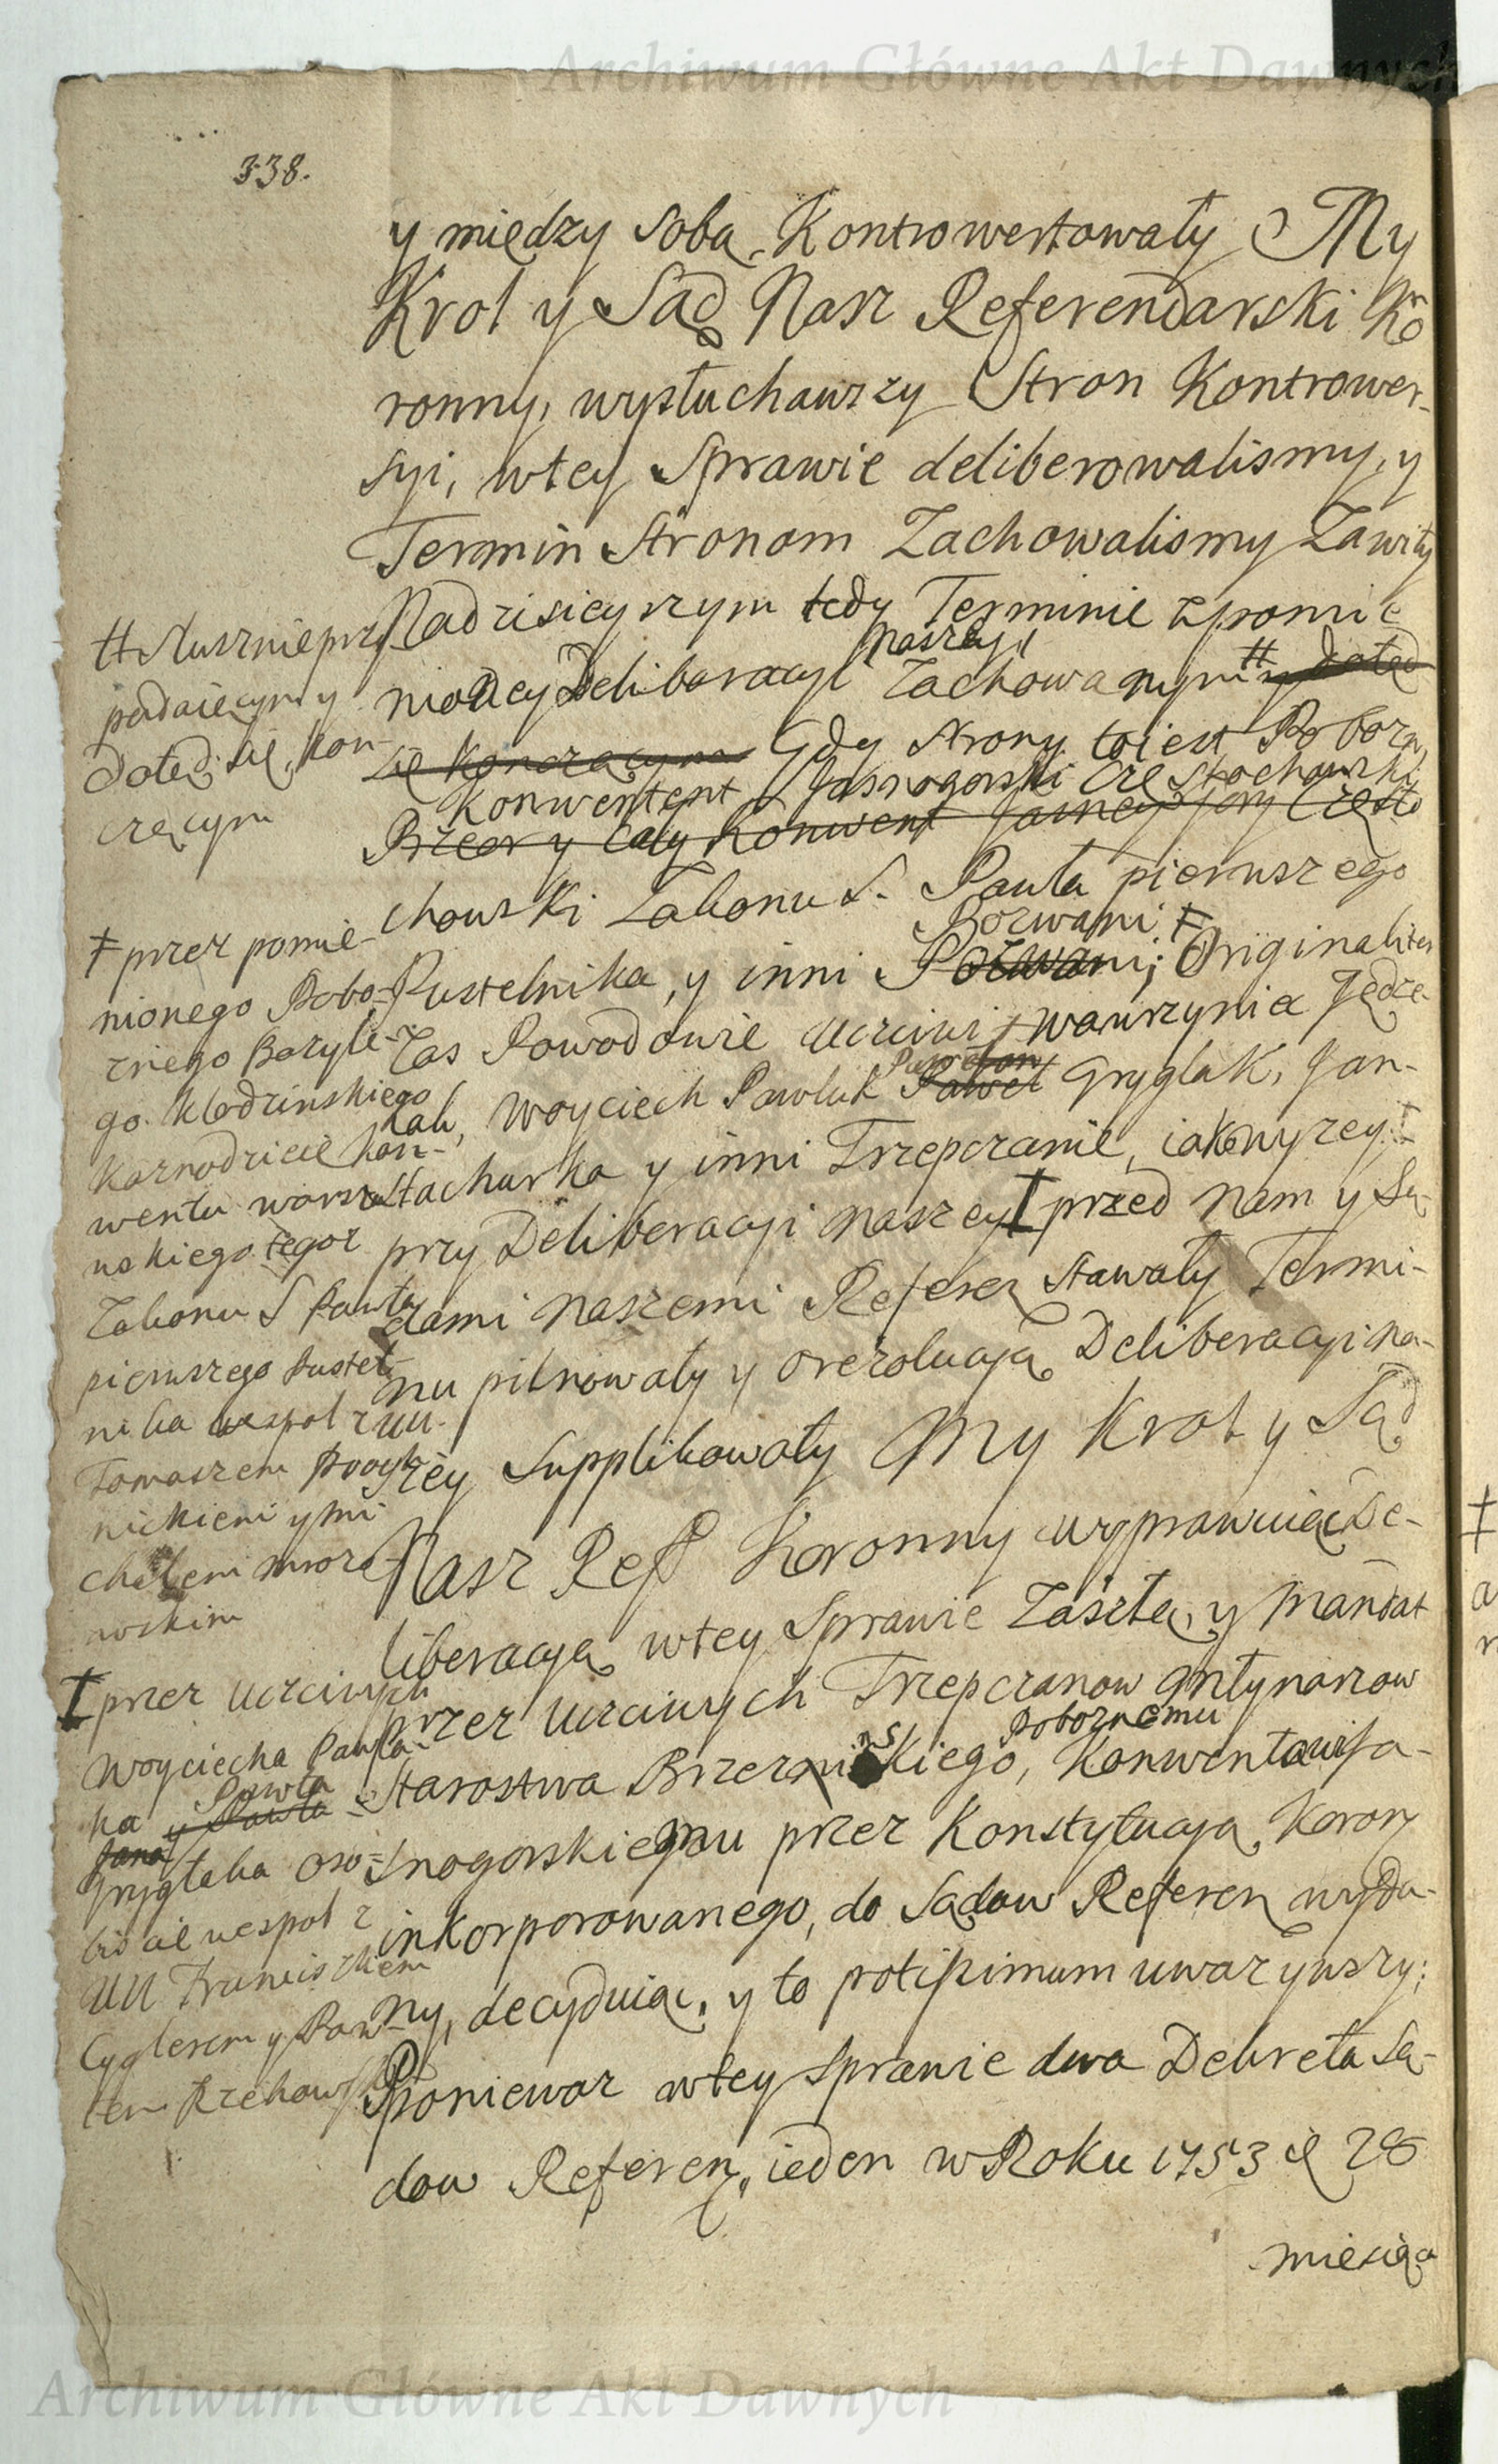 Archiwum Główne Akt Dawnych
338.
y między sobą Kontrowertowały My
Krol y Sąd Nasz Referendarski Ko
ronny, wysłuchawszy Stron Kontrower-
syi, wtey Sprawie deliberowalismy, y
Termin Stronom Zachowalismy Zawity
Nadzisieyszym tedy Terminie zpomie
nioney Deliberacyi naszey Zachowanym # y dotąd
się Konczącym Gdy Strony toiest Pobozny
Konwentent Jasnogorski Częstochowski
Przeor y Cały Konwent Jasney Gory Często
chowski Zakonu S. Pawła pierwszego
Pozwani ‡
Pustelnika, y inni Pozwani; Originaliter
Zas Powodowie Ucziwi Wawrzyniec Jędrze-
zak, Woyciech Pawluk Paweł Gryglak, Jan
Stachurka y inni Trzepczanie, iakowyzey
przy Deliberacyi naszey † przed Nam y Są-
dami naszemi Referen stawały Termi-
nu pilnowały y orezolucyą Deliberacyi na-
szey Supplikowały My Krol y Sąd
Nasz Ref Koronny wyprawuiąc De-
liberacyą wtey Sprawie Zaszłą, y Mandat
przez Ucziwych Trzepczanow Antynaszow
Starostwa Brzeznickiego, Poboznemu Konwentowi Ja-
snogorskiemu przez Konstytucyą Koron
inkorporowanego, do Sądow Referen wyda-
ny, decyduiąc, y to potissimum uwazywszy;
Poniewaz wtey Sprawie dwa Dekreta Są-
dow Referen, ieden w Roku 1753 d 28
miesiąca
# Słusznie przy
padaiącym y
dotąd się kon-
czącym
‡ przez pomie-
nionego Pobo-
znego Bazyle-
go Kłodzinskiego
Kaznodzieię kon-
wentu warsza
wskiego tegoz
Zakonu S Pawła
pierwszego Pustel-
nika wespoł z UU.
Tomaszem
nickiemi y Mi
chałem Mroze
wskim
† przez Ucziwych
Woyciecha Pawla
ka y Pawła
Pawła
Jana
Gryglaka oso-
biscie wespoł z
UU Franciszkiem
Cyglerem y Paw-
łem
Archiwum Główne Akt Dawnych